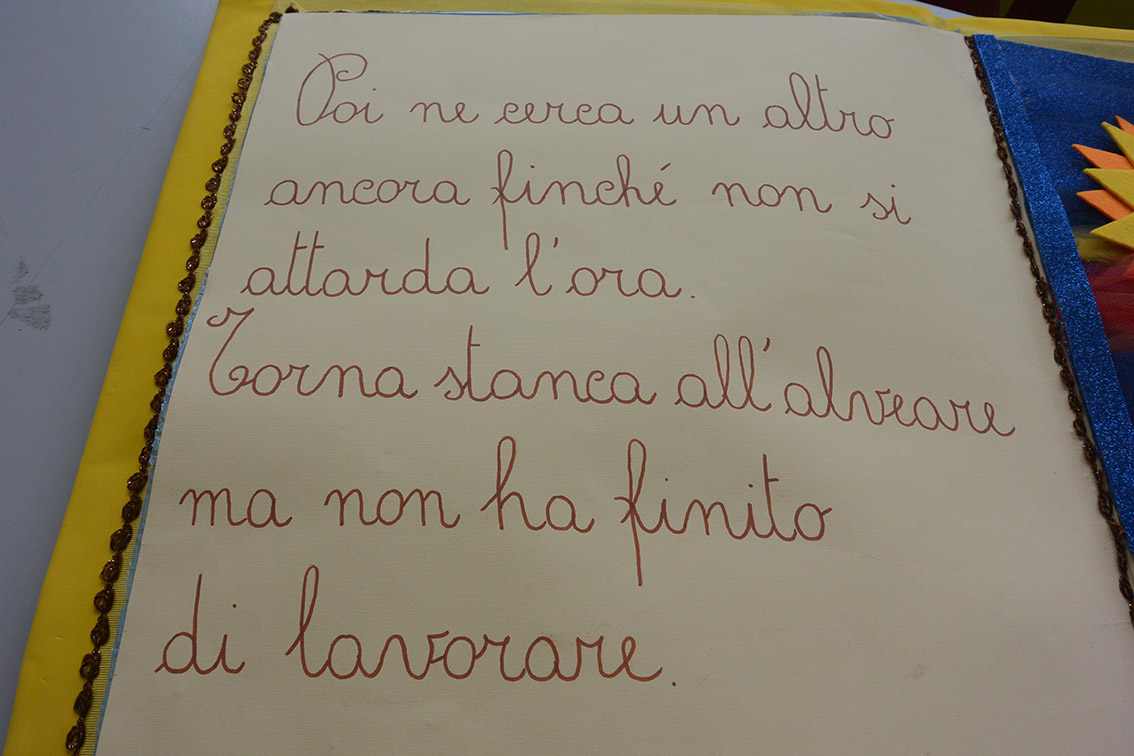 Poi ne cerca un altro
ancora finché non si
attarda l'ora.
Torna stanca all'alveare
ma non ha finito
di lavorare.